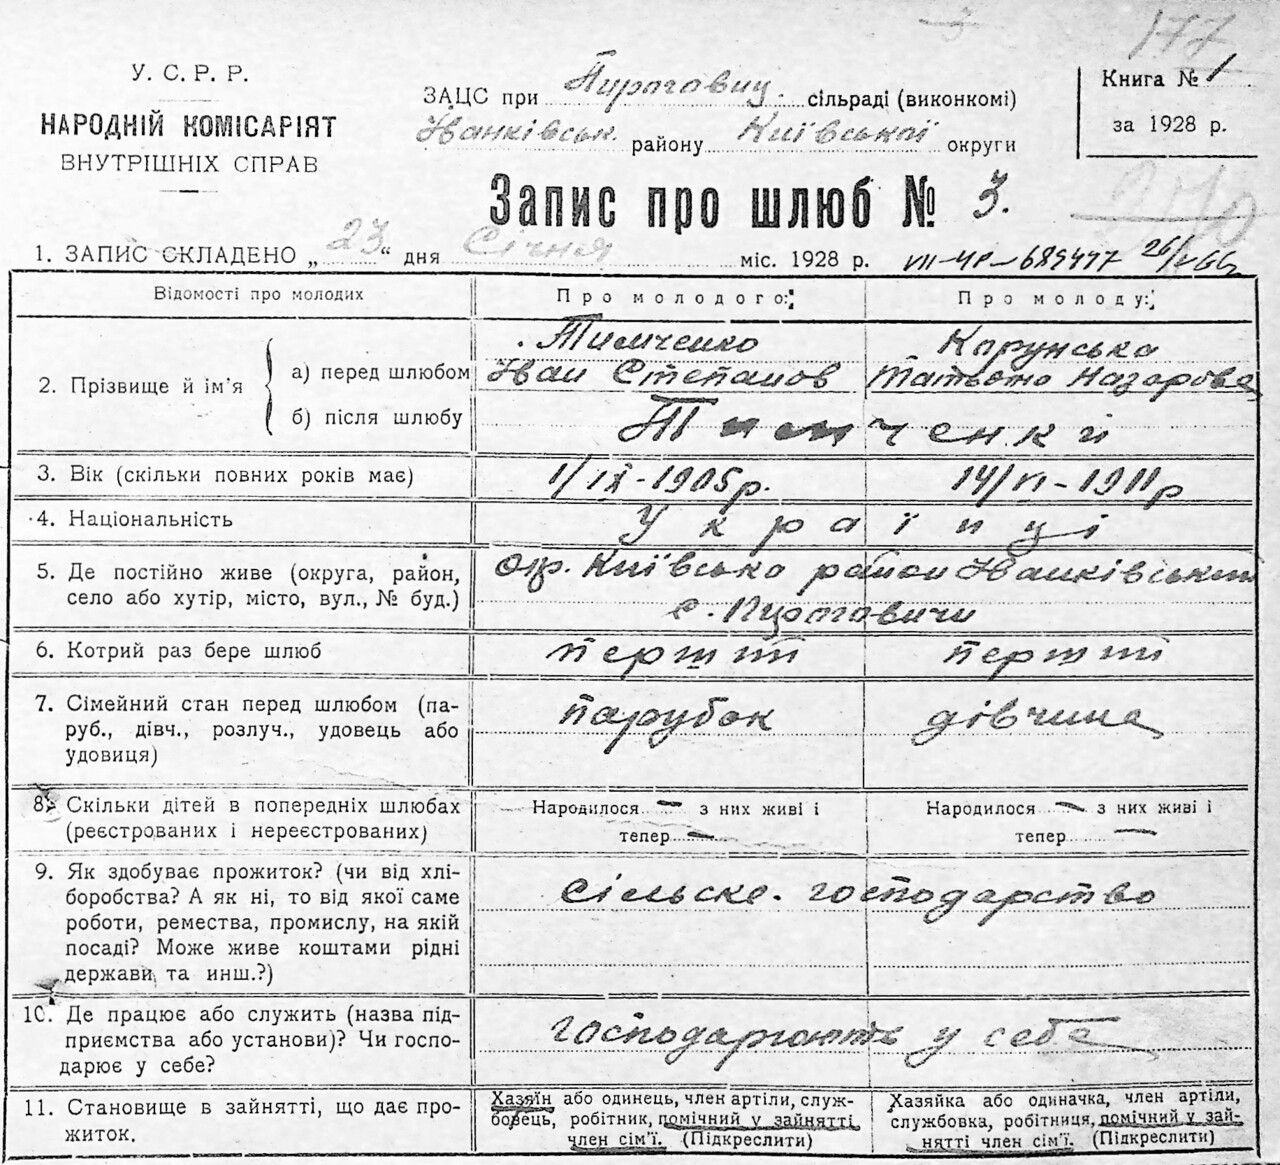 177
У. С. Р. Р.
НАРОДНІЙ КОМІСАРІЯТ
ВНУТРІШНІХ СПРАВ
ЗАЦС при Пироговиц. сільраді (виконкомі)
Іванківськ. району Київської округи
Книга № 1
за 1928 р.
Запис про шлюб № 3.
1. ЗАПИС СКЛАДЕНО „ 23 “ дня Січня міс. 1928 р. VII-ЧР-689477
Відомості про молодих Про молодого: Про молоду:
2. Прізвище й ім’я
а) перед шлюбом
Тимченко
Іван Степанов
Карунська
Татьяна Назарова
б) після шлюбу
Тимченки
3. Вік (скільки повних років має) 1/IX-1905р. 14/VI-1911р
4. Національність Українці
5. Де постійно живе (округа, район,
село або хутір, місто, вул., № буд.)
окр. Київська район Іванківський
с. Пироговичи
6. Котрий раз бере шлюб перший перший
7. Сімейний стан перед шлюбом (па-
руб., дівч., розлуч., удовець або
удовиця)
парубок дівчина
8. Скільки дітей в попередніх шлюбах
(реєстрованих і нереєстрованих)
Народилося — з них живі і
тепер —
Народилося — з них живі і
тепер —
9. Як здобуває прожиток? (чи від хлі-
боробства? А як ні, то від якої саме
роботи, ремества, промислу, на якій
посаді? Може живе коштами рідні
держави та инш.?)
сільске. господарство
10. Де працює або служить (назва під-
приємства або установи)? Чи госпо-
дарює у себе?
господарюють у себе
11. Становище в зайнятті, що дає про-
житок.
Хазяїн або одинець, член артілі, служ-
бовець, робітник, помічний у зайнятті
член сім’ї. (Підкреслити)
Хазяйка або одиначка, член артілі,
службовка, робітниця, помічний у зай-
нятті член сім’ї. (Підкреслити)